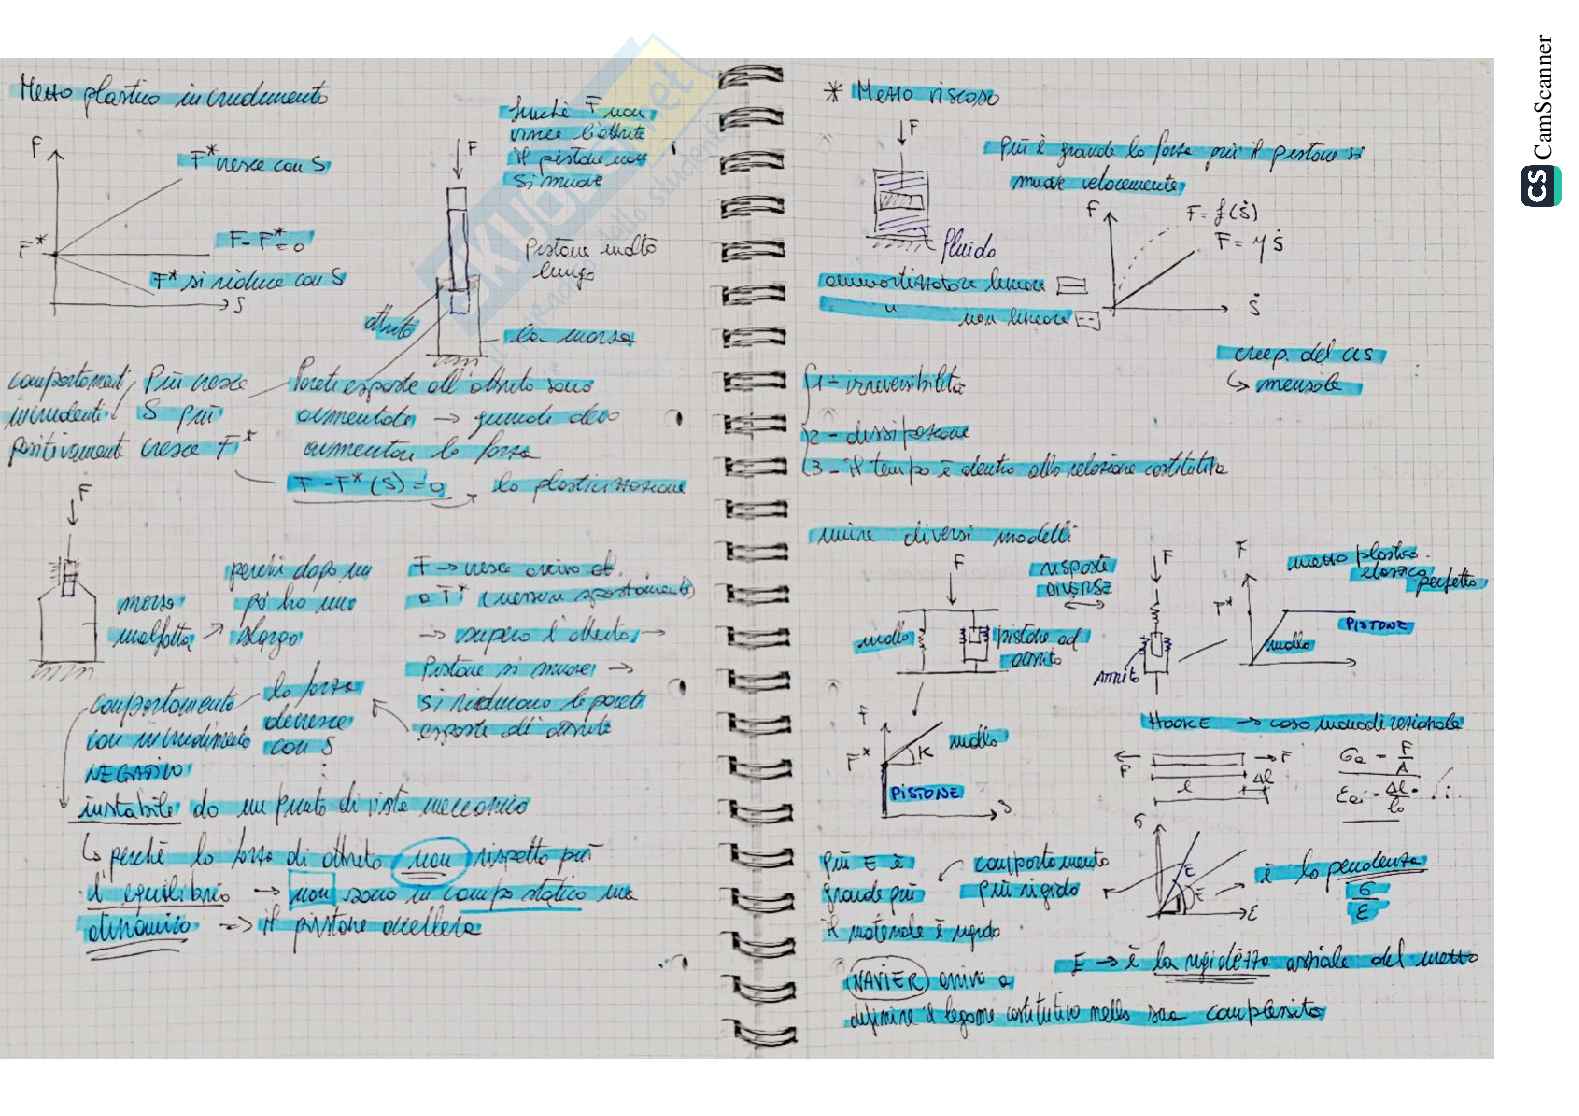 Mezzo plastico incrudimento
F
F* cresce con S
F*
F - F* = 0
F* si riduce con S
S
finché F non
vince l'attrito
il pistone non
si muove
F
Pistone molto
lungo
attrito
la morsa
comportamenti
incrudenti
positivamente
Più cresce
S più
cresce F*
Parete esposte all'attrito sono
aumentate → quindi devo
aumentare la forza
F - F*(S) = 0 → la plasticizzazione
F
morsa
malfatta
perché dopo un
pò ho uno
slargo
F → cresce arrivo at.
a F* (nessun spostamento)
→ supero l'attrito →
Pistone si muove →
si riducono le pareti
esposte di attrito
comportamento
con incrudimento
NEGATIVO
la forza
decresce
con S
instabile da un punto di vista meccanico
↳ perché la forza di attrito non rispetta più
l'equilibrio → non sono in campo statico ma
dinamico → il pistone accellera
* Mezzo viscoso
F
Più è grande la forza più il pistone si
muove velocemente
fluido
F
F = f(Ṡ)
F = η Ṡ
Ṡ
ammortizzatore lineare
" non lineare
creep. del cls
↳ mensole
1 - irreversibilità
2 - dissipazione
3 - il tempo è dentro alla relazione costitutiva
unire diversi modelli
F
molla
pistone ad
attrito
risposte
DIVERSE
F
attrito
F
F*
mezzo plastico.
classico
perfetto
PISTONE
molla
F
F*
K
molla
PISTONE
S
HOOKE → caso monodimensionale
F
F
l
Δl
σ
E
E
ε
Più E è
grande più
il materiale è rigido
comportamento
più rigido
è la pendenza
σ
ε
E → è la rigidezza assiale del mezzo
NAVIER arrivo a
definire il legame costitutivo nella sua complessità
CS CamScanner